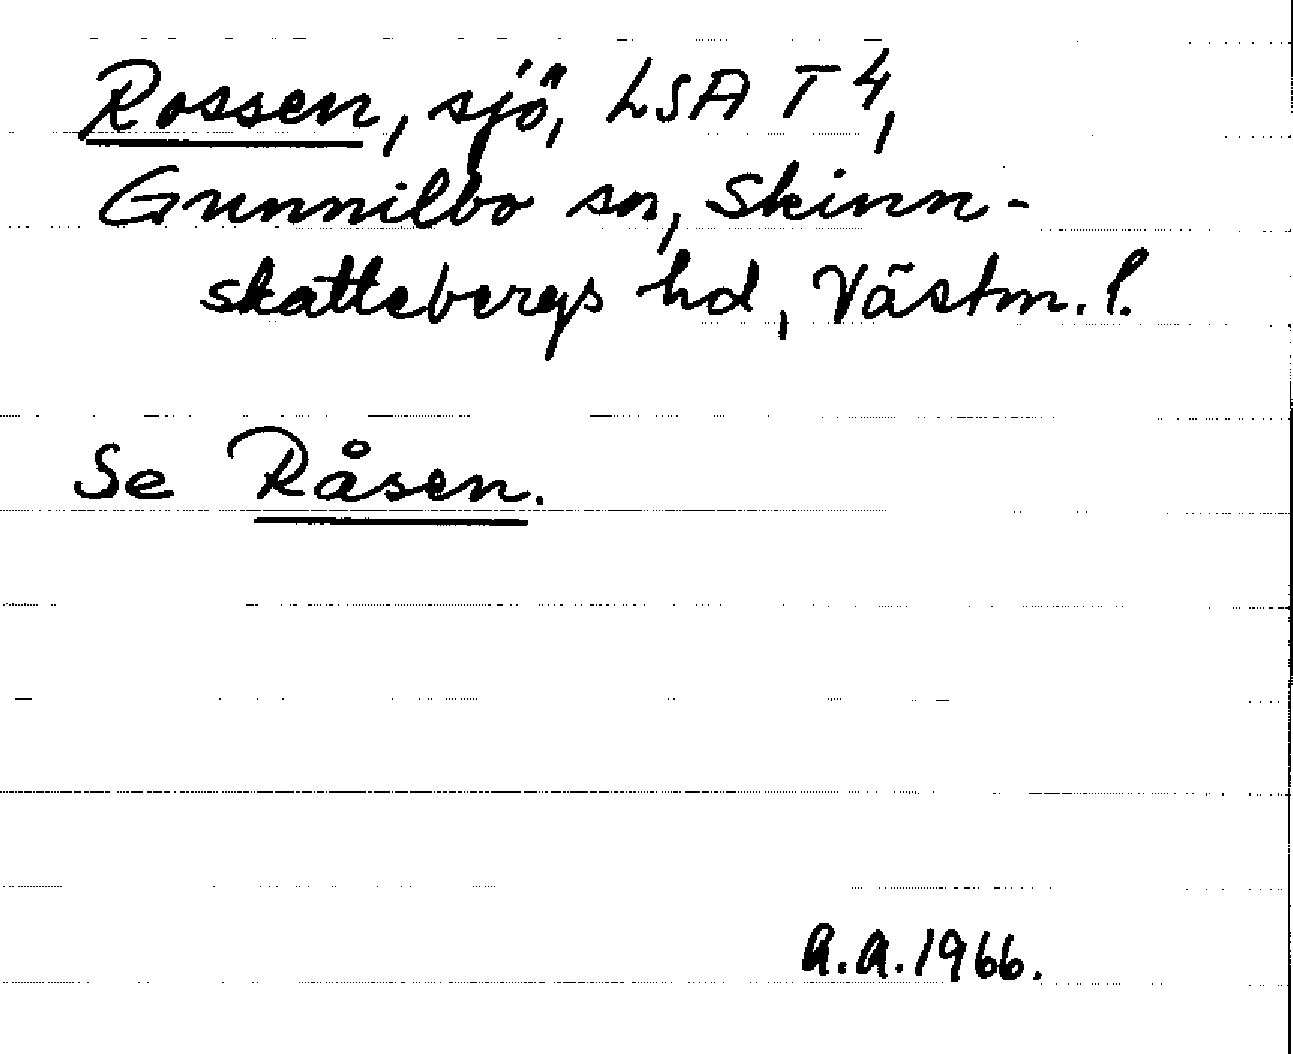 Rossen, sjö, LSA T 4,
Gunnilbo sn, Skinn-
skattebergs hd, Västm. l.
Se Råsen.
A.A.1966.